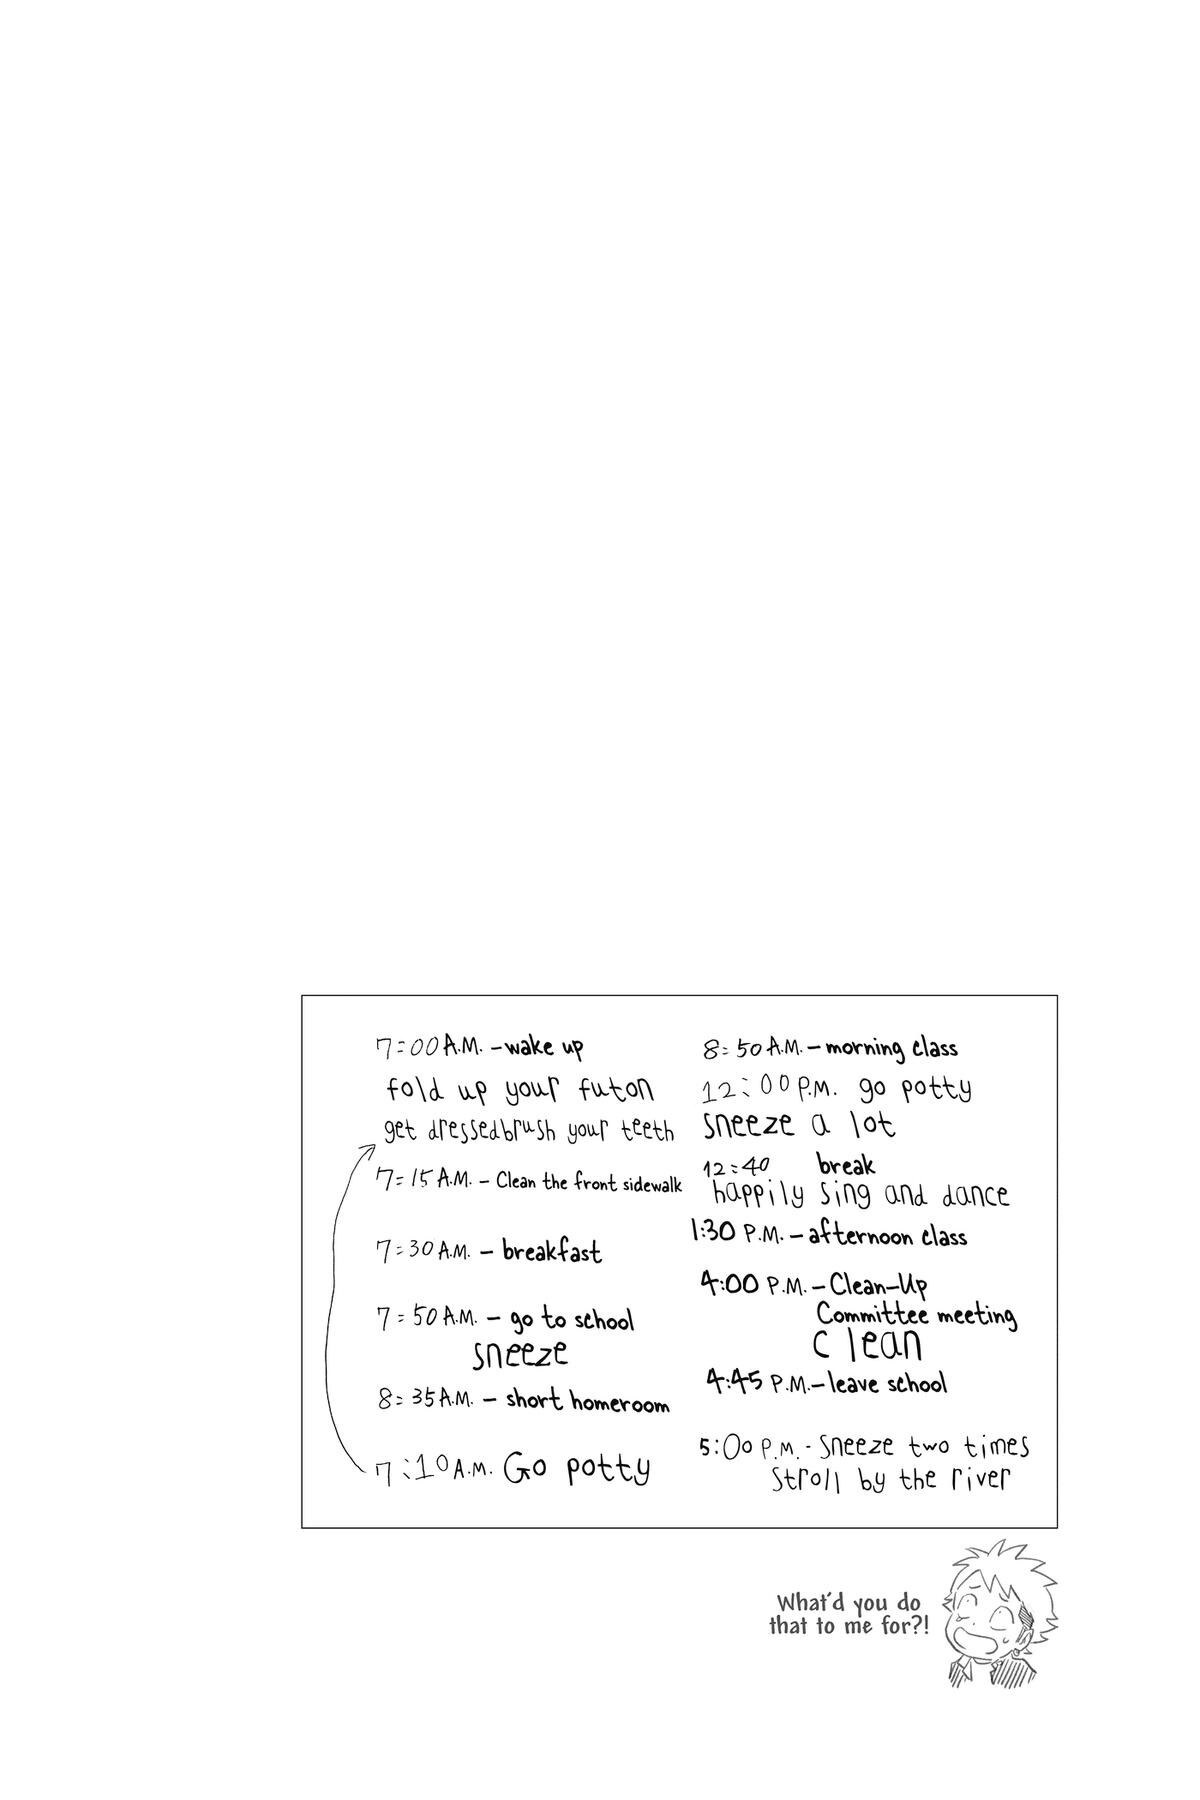 7:00 A.M. - wake up
fold up your futon
get dressed brush your teeth
7:15 A.M. - Clean the front sidewalk
7:30 A.M. - breakfast
7:50 A.M. - go to school
sneeze
8:35 A.M. - short homeroom
7:10 A.M. Go potty
8:50 A.M. - morning class
12:00 P.M. go potty
sneeze a lot
12:40 break
happily sing and dance
1:30 P.M. - afternoon class
4:00 P.M. - Clean-Up
Committee meeting
clean
4:45 P.M. - leave school
5:00 P.M. - sneeze two times
stroll by the river
What'd you do
that to me for?!